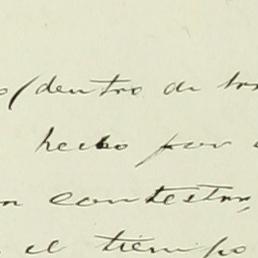 (dentro de
hecho por
contestar,
el tiempo